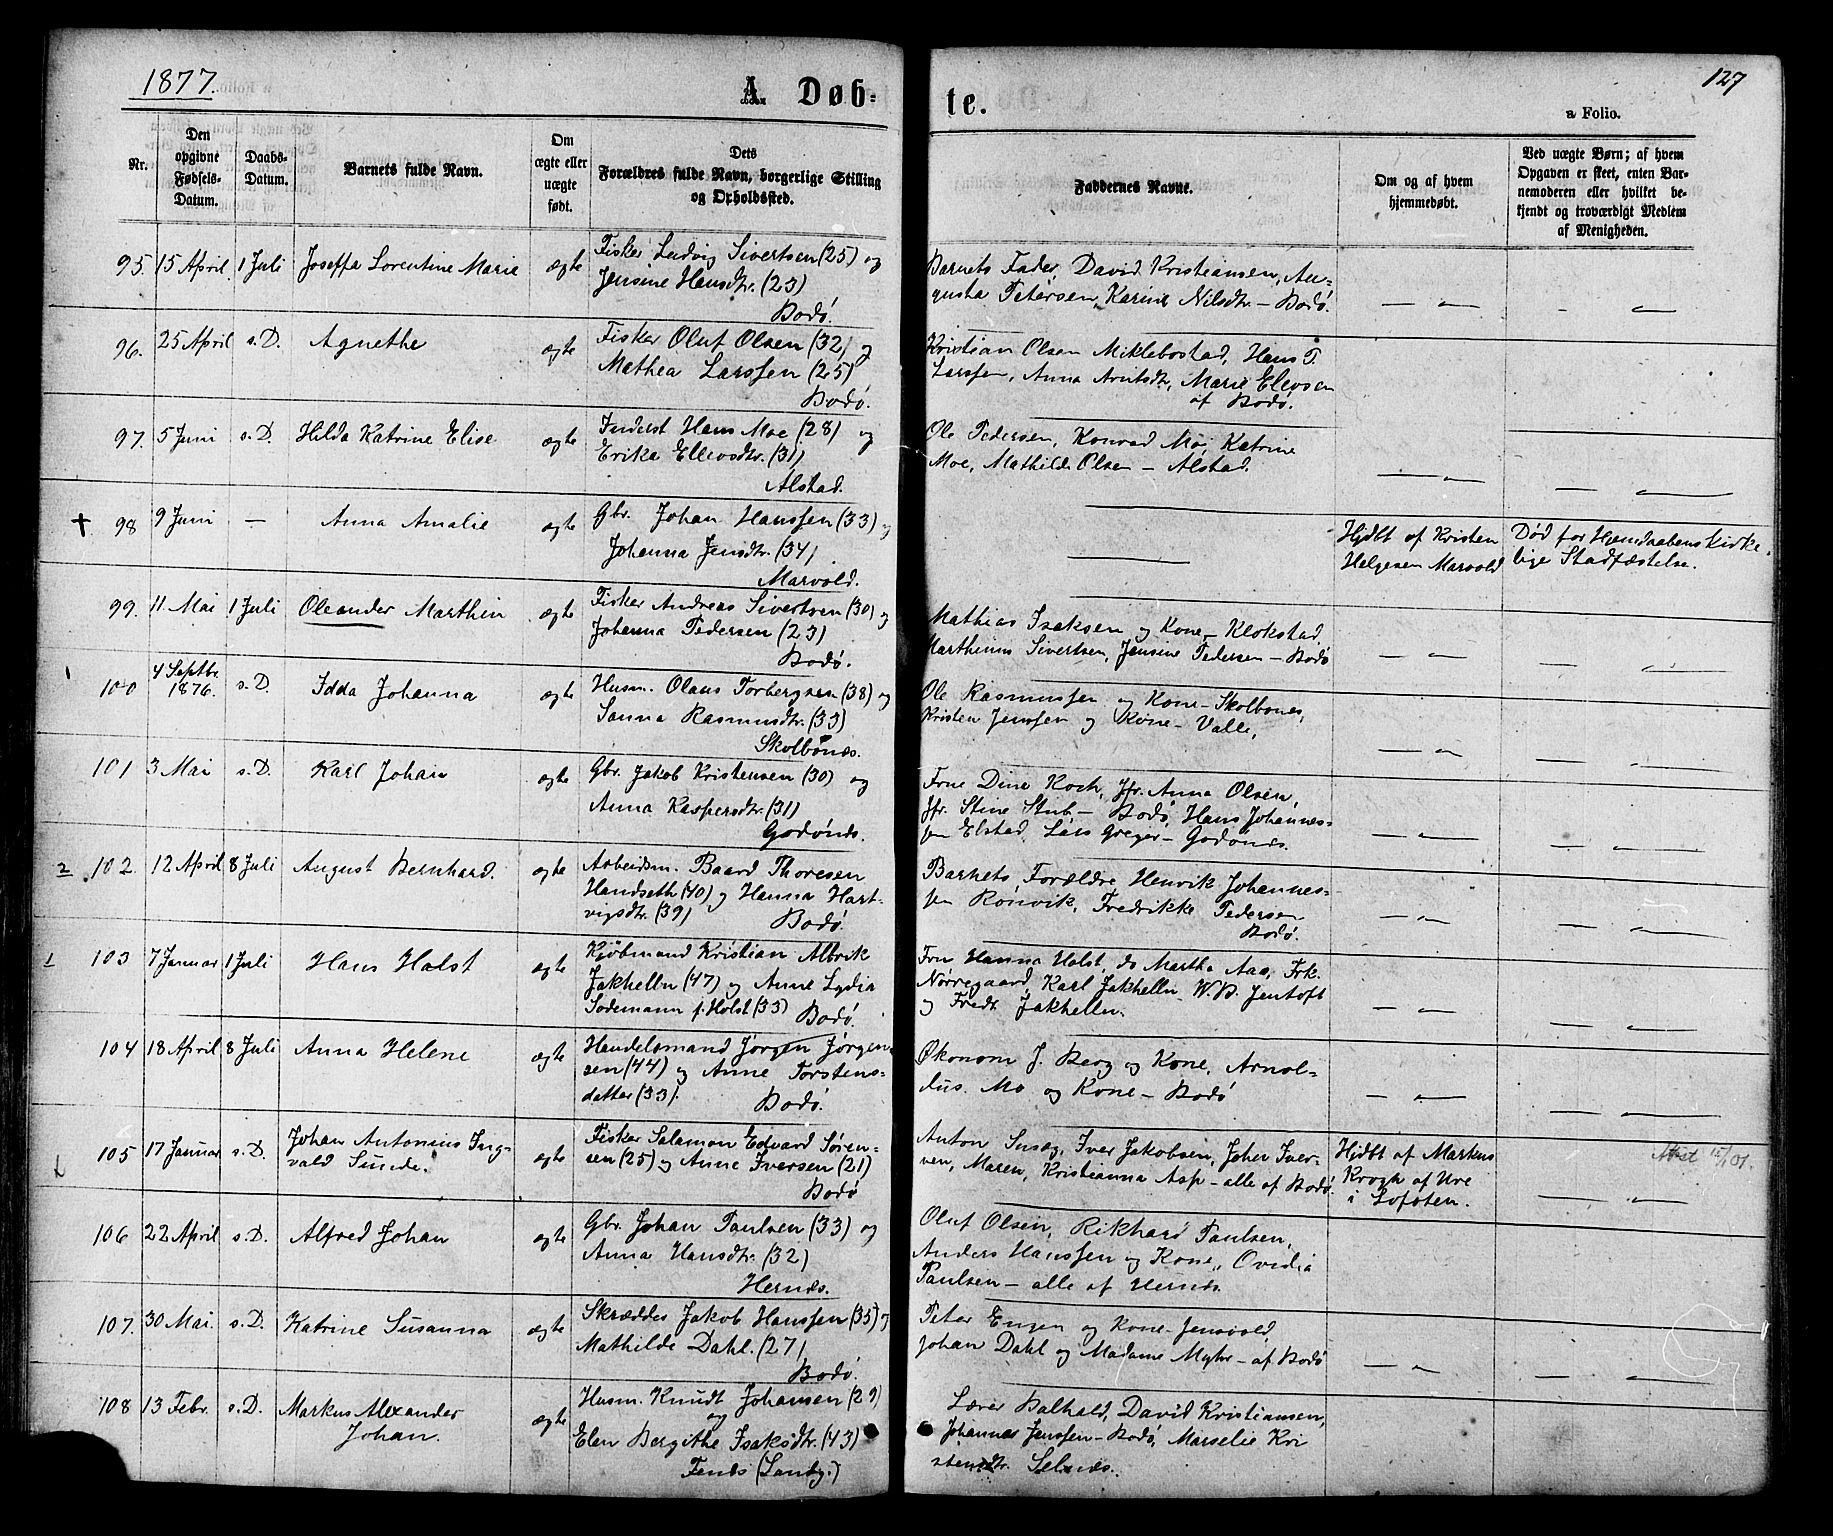 1877.
A Døb-
te.
127
a Folio.
Nr.
Den opgivne Fødsels-Datum.
Daabs-Datum.
Barnets fulde Navn.
Om ægte eller uægte født.
Dets Forældres fulde Navn, borgerlige Stilling og Opholdssted.
Faddernes Navne.
Om og af hvem hjemmedøbt.
Ved uægte Børn; af hvem Opgaven er skeet, enten Barnemoderen eller hvilket bekjendt og troværdigt Medlem af Menigheden.
95. 15 April 1 Juli Joseffa Lorentine Marie ægte
Fisker Ludvig Sivertsen (25) og
Jensine Hansdtr. (23)
Bodø.
Barnets Fader, David Kristiansen, Au-
gusta Petersen, Karine Nilsdtr. – Bodø.
96. 25 April s.D. Agnethe ægte
Fisker Oluf Olsen (32) og
Mathea Larssen (25)
Bodø.
Kristian Olsen Miklebostad, Hans P.
Larssen, Anna Arntsdtr, Marie Elevsen
af Bodø.
97. 5 Juni s.D. Hilda Katrine Elise ægte
Inderst Hans Moe (28) og
Erika Ellevsdtr. (31)
Alstad.
Ole Pedersen, Konrad Moe, Katrine
Moe, Mathilde Olsen – Alstad.
† 98 9 Juni — Anna Amalie ægte
Gbr. Johan Hanssen (33) og
Johanna Jensdtr. (34)
Marvold.
Hjdbt af Kristen
Helgesen Marvold
Død før Hjemdaabens kirke-
lige Stadfæstelse.
99. 11 Mai 1 Juli Oleander Marthin ægte
Fisker Andreas Sivertsen (30) og
Johanna Pedersen (23)
Bodø.
Mathias Isaksen og Kone – Klokstad,
Marthinus Sivertsen, Jensine Pedersen – Bodø
1 100 4 Septbr. 1876. s.D. Idda Johanna ægte
Husm. Olaus Torbergsen (38) og
Sanna Rasmusdtr. (33)
Skolbønes.
Ole Rasmussen og Kone – Skolbønes,
Kristen Jenssen og Kone – Valle,
101 3 Mai s.D. Karl Johan ægte
Gbr. Jakob Kristensen (30) og
Anna Kaspersdtr. (31)
Godønes.
Frue Dine Koch, Jfr. Anna Olsen,
Jfr. Stine Stub, – Bodø, Hans Johannes-
sen Elstad, Lars Greger – Godønes.
2 102. 12 April 8 Juli August Bernhard. ægte
Arbeidsm. Baard Thoresen
Handseth (40) og Hanna Hart-
vigsdtr. (39)
Bodø.
Barnets Forældre, Henrik Johannes-
sen Rønvik, Fredrikke Pedersen
Bodø.
1 103 7 Januar 1 Juli Hans Holst ægte
Kjøbmand Kristian Albrik
Jakhelln (47) og Anne Lydia
Sodemann f. Holst (33) Bodø.
Fru Hanna Holst, do Martha Aas, Frk.
Nørregaard, Karl Jakhelln, W.B. Jentoft
og Fredr. Jakhelln.
104 18 April 8 Juli Anna Helene ægte
Handelsmand Jørgen Jørgen-
sen (44) og Anne Torstens-
datter (33).
Bodø.
Økonom J. Berg og Kone, Arnol-
dus Mo og Kone – Bodø
105 17 Januar s.D. Johan Antonius Ing-
vald Sunde. ægte
Fisker Salamon Edvard Søren-
sen (25) og Anne Iversen (21)
Bodø
Anton Susæg, Iver Jakobsen, Johan Iver-
sen, Maren, Kristianna Asp – alle af Bodø.
Hjdbt af Markus
Krogh af Ure
i Lofoten.
Attest 12/1 01.
106 22 April s.D. Alfred Johan ægte
Gbr. Johan Paulsen (33) og
Anna Hansdtr. (32)
Hernes.
Oluf Olsen, Rikhard Paulsen,
Anders Hanssen og Kone, Ovidia
Paulsen – alle af Hernes.
107. 30 Mai. s.D. Katrine Susanna ægte
Skrædder Jakob Hanssen (35) og
Mathilde Dahl. (27)
Bodø.
Peter Engen og Kone Jensvold,
Johan Dahl og Madame Myhr – af Bodø
108 13 Febr. s.D. Markus Alexander
Johan. ægte
Husm. Knudt Johansen (29)
og
Elen Bergithe Isaksdtr. (43)
Fenes (Landg.)
Lærer Dalhald, David Kristiansen,
Johannes Jenssen – Bodø, Marselie Kri
stensdtr. Selnæs.